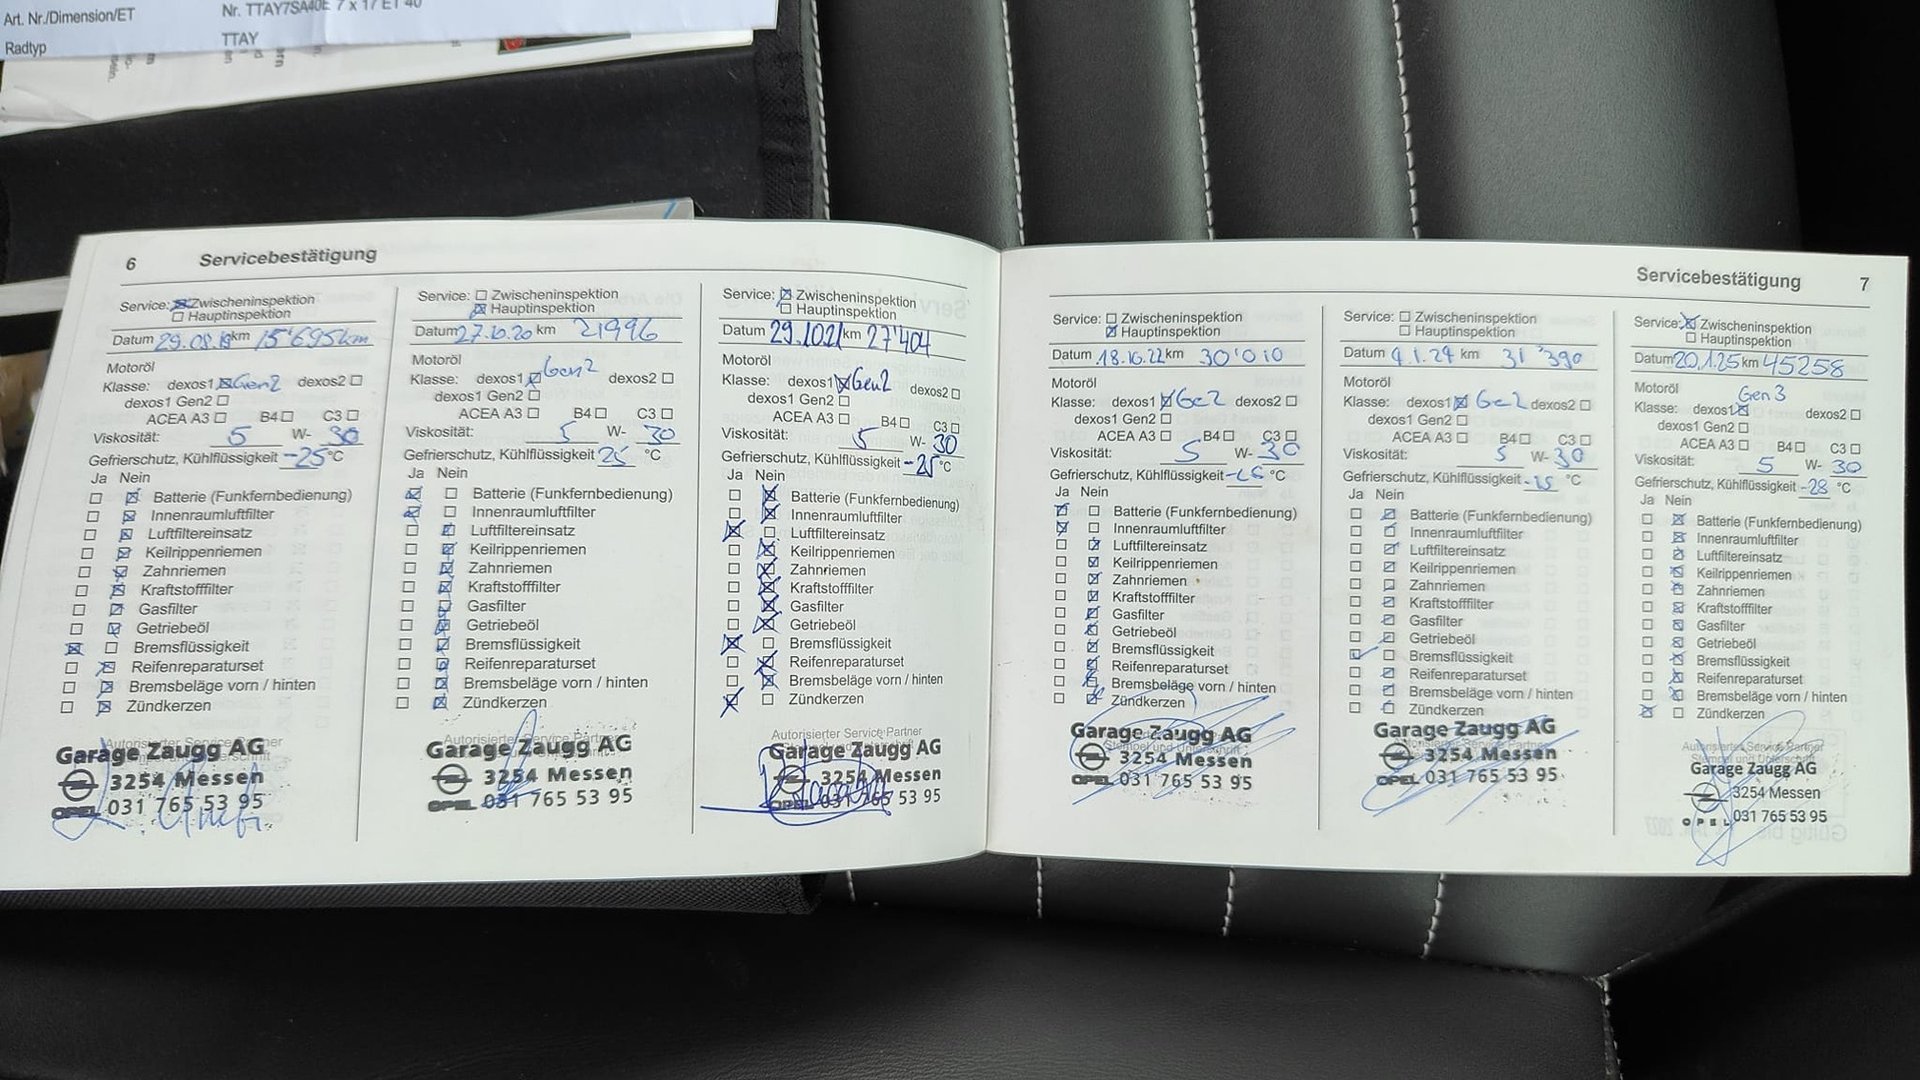 Art. Nr./Dimension/ET Nr. TTAY7SA40E 7 x 17 ET 40
Radtyp TTAY
6 Servicebestätigung
Service: ☒ Zwischeninspektion
☐ Hauptinspektion
Datum 29.08.19 km 15'695 km
Motoröl
Klasse: dexos1 ☒ Gen2 dexos2 ☐
dexos1 Gen2 ☐
ACEA A3 ☐ B4 ☐ C3 ☐
Viskosität: 5 W- 30
Gefrierschutz, Kühlflüssigkeit -25 °C
Ja Nein
☐ ☒ Batterie (Funkfernbedienung)
☐ ☒ Innenraumluftfilter
☐ ☒ Luftfiltereinsatz
☐ ☒ Keilrippenriemen
☐ ☒ Zahnriemen
☐ ☒ Kraftstofffilter
☐ ☒ Gasfilter
☐ ☒ Getriebeöl
☒ ☐ Bremsflüssigkeit
☐ ☒ Reifenreparaturset
☐ ☒ Bremsbeläge vorn / hinten
☐ ☒ Zündkerzen
Autorisierter Service Partner
Garage Zaugg AG
3254 Messen
OPEL 031 765 53 95
Service: ☐ Zwischeninspektion
☒ Hauptinspektion
Datum 27.10.20 km 21996
Motoröl
Klasse: dexos1 ☒ Gen2 dexos2 ☐
dexos1 Gen2 ☐
ACEA A3 ☐ B4 ☐ C3 ☐
Viskosität: 5 W- 30
Gefrierschutz, Kühlflüssigkeit 25 °C
Ja Nein
☒ ☐ Batterie (Funkfernbedienung)
☒ ☐ Innenraumluftfilter
☐ ☒ Luftfiltereinsatz
☐ ☒ Keilrippenriemen
☐ ☒ Zahnriemen
☐ ☒ Kraftstofffilter
☐ ☒ Gasfilter
☐ ☒ Getriebeöl
☐ ☒ Bremsflüssigkeit
☐ ☒ Reifenreparaturset
☐ ☒ Bremsbeläge vorn / hinten
☐ ☒ Zündkerzen
Autorisierter Service Partner
Garage Zaugg AG
3254 Messen
OPEL 031 765 53 95
Service: ☒ Zwischeninspektion
☐ Hauptinspektion
Datum 29.10.21 km 27'404
Motoröl
Klasse: dexos1 ☒ Gen2 dexos2 ☐
dexos1 Gen2 ☐
ACEA A3 ☐ B4 ☐ C3 ☐
Viskosität: 5 W- 30
Gefrierschutz, Kühlflüssigkeit -25 °C
Ja Nein
☐ ☒ Batterie (Funkfernbedienung)
☐ ☒ Innenraumluftfilter
☒ ☐ Luftfiltereinsatz
☐ ☒ Keilrippenriemen
☐ ☒ Zahnriemen
☐ ☒ Kraftstofffilter
☐ ☒ Gasfilter
☐ ☒ Getriebeöl
☒ ☐ Bremsflüssigkeit
☐ ☒ Reifenreparaturset
☐ ☒ Bremsbeläge vorn / hinten
☒ ☐ Zündkerzen
Autorisierter Service Partner
Garage Zaugg AG
3254 Messen
OPEL 031 765 53 95
Servicebestätigung 7
Service: ☐ Zwischeninspektion
☒ Hauptinspektion
Datum 18.10.22 km 30'010
Motoröl
Klasse: dexos1 ☒ Ge2 dexos2 ☐
dexos1 Gen2 ☐
ACEA A3 ☐ B4 ☐ C3 ☐
Viskosität: 5 W- 30
Gefrierschutz, Kühlflüssigkeit -25 °C
Ja Nein
☒ ☐ Batterie (Funkfernbedienung)
☒ ☐ Innenraumluftfilter
☐ ☒ Luftfiltereinsatz
☐ ☒ Keilrippenriemen
☐ ☒ Zahnriemen
☐ ☒ Kraftstofffilter
☐ ☒ Gasfilter
☐ ☒ Getriebeöl
☐ ☒ Bremsflüssigkeit
☐ ☒ Reifenreparaturset
☐ ☒ Bremsbeläge vorn / hinten
☐ ☒ Zündkerzen
Stempel und Unterschrift
Garage Zaugg AG
3254 Messen
OPEL 031 765 53 95
Service: ☐ Zwischeninspektion
☐ Hauptinspektion
Datum 9.1.24 km 31'390
Motoröl
Klasse: dexos1 ☒ Ge2 dexos2 ☐
dexos1 Gen2 ☐
ACEA A3 ☐ B4 ☐ C3 ☐
Viskosität: 5 W- 30
Gefrierschutz, Kühlflüssigkeit -25 °C
Ja Nein
☐ ☒ Batterie (Funkfernbedienung)
☐ ☒ Innenraumluftfilter
☐ ☒ Luftfiltereinsatz
☐ ☒ Keilrippenriemen
☐ ☐ Zahnriemen
☐ ☒ Kraftstofffilter
☐ ☒ Gasfilter
☐ ☒ Getriebeöl
☒ ☐ Bremsflüssigkeit
☐ ☒ Reifenreparaturset
☐ ☒ Bremsbeläge vorn / hinten
☐ ☒ Zündkerzen
Autorisierter Service Partner
Garage Zaugg AG
3254 Messen
OPEL 031 765 53 95
Service: ☒ Zwischeninspektion
☐ Hauptinspektion
Datum 20.1.25 km 45258
Motoröl Gen 3
Klasse: dexos1 ☒ dexos2 ☐
dexos1 Gen2 ☐
ACEA A3 ☐ B4 ☐ C3 ☐
Viskosität: 5 W- 30
Gefrierschutz, Kühlflüssigkeit -28 °C
Ja Nein
☐ ☒ Batterie (Funkfernbedienung)
☐ ☒ Innenraumluftfilter
☐ ☒ Luftfiltereinsatz
☐ ☒ Keilrippenriemen
☐ ☒ Zahnriemen
☐ ☒ Kraftstofffilter
☐ ☒ Gasfilter
☐ ☒ Getriebeöl
☐ ☒ Bremsflüssigkeit
☐ ☒ Reifenreparaturset
☐ ☒ Bremsbeläge vorn / hinten
☒ ☐ Zündkerzen
Autorisierter Service Partner
Stempel und Unterschrift
Garage Zaugg AG
3254 Messen
OPEL 031 765 53 95